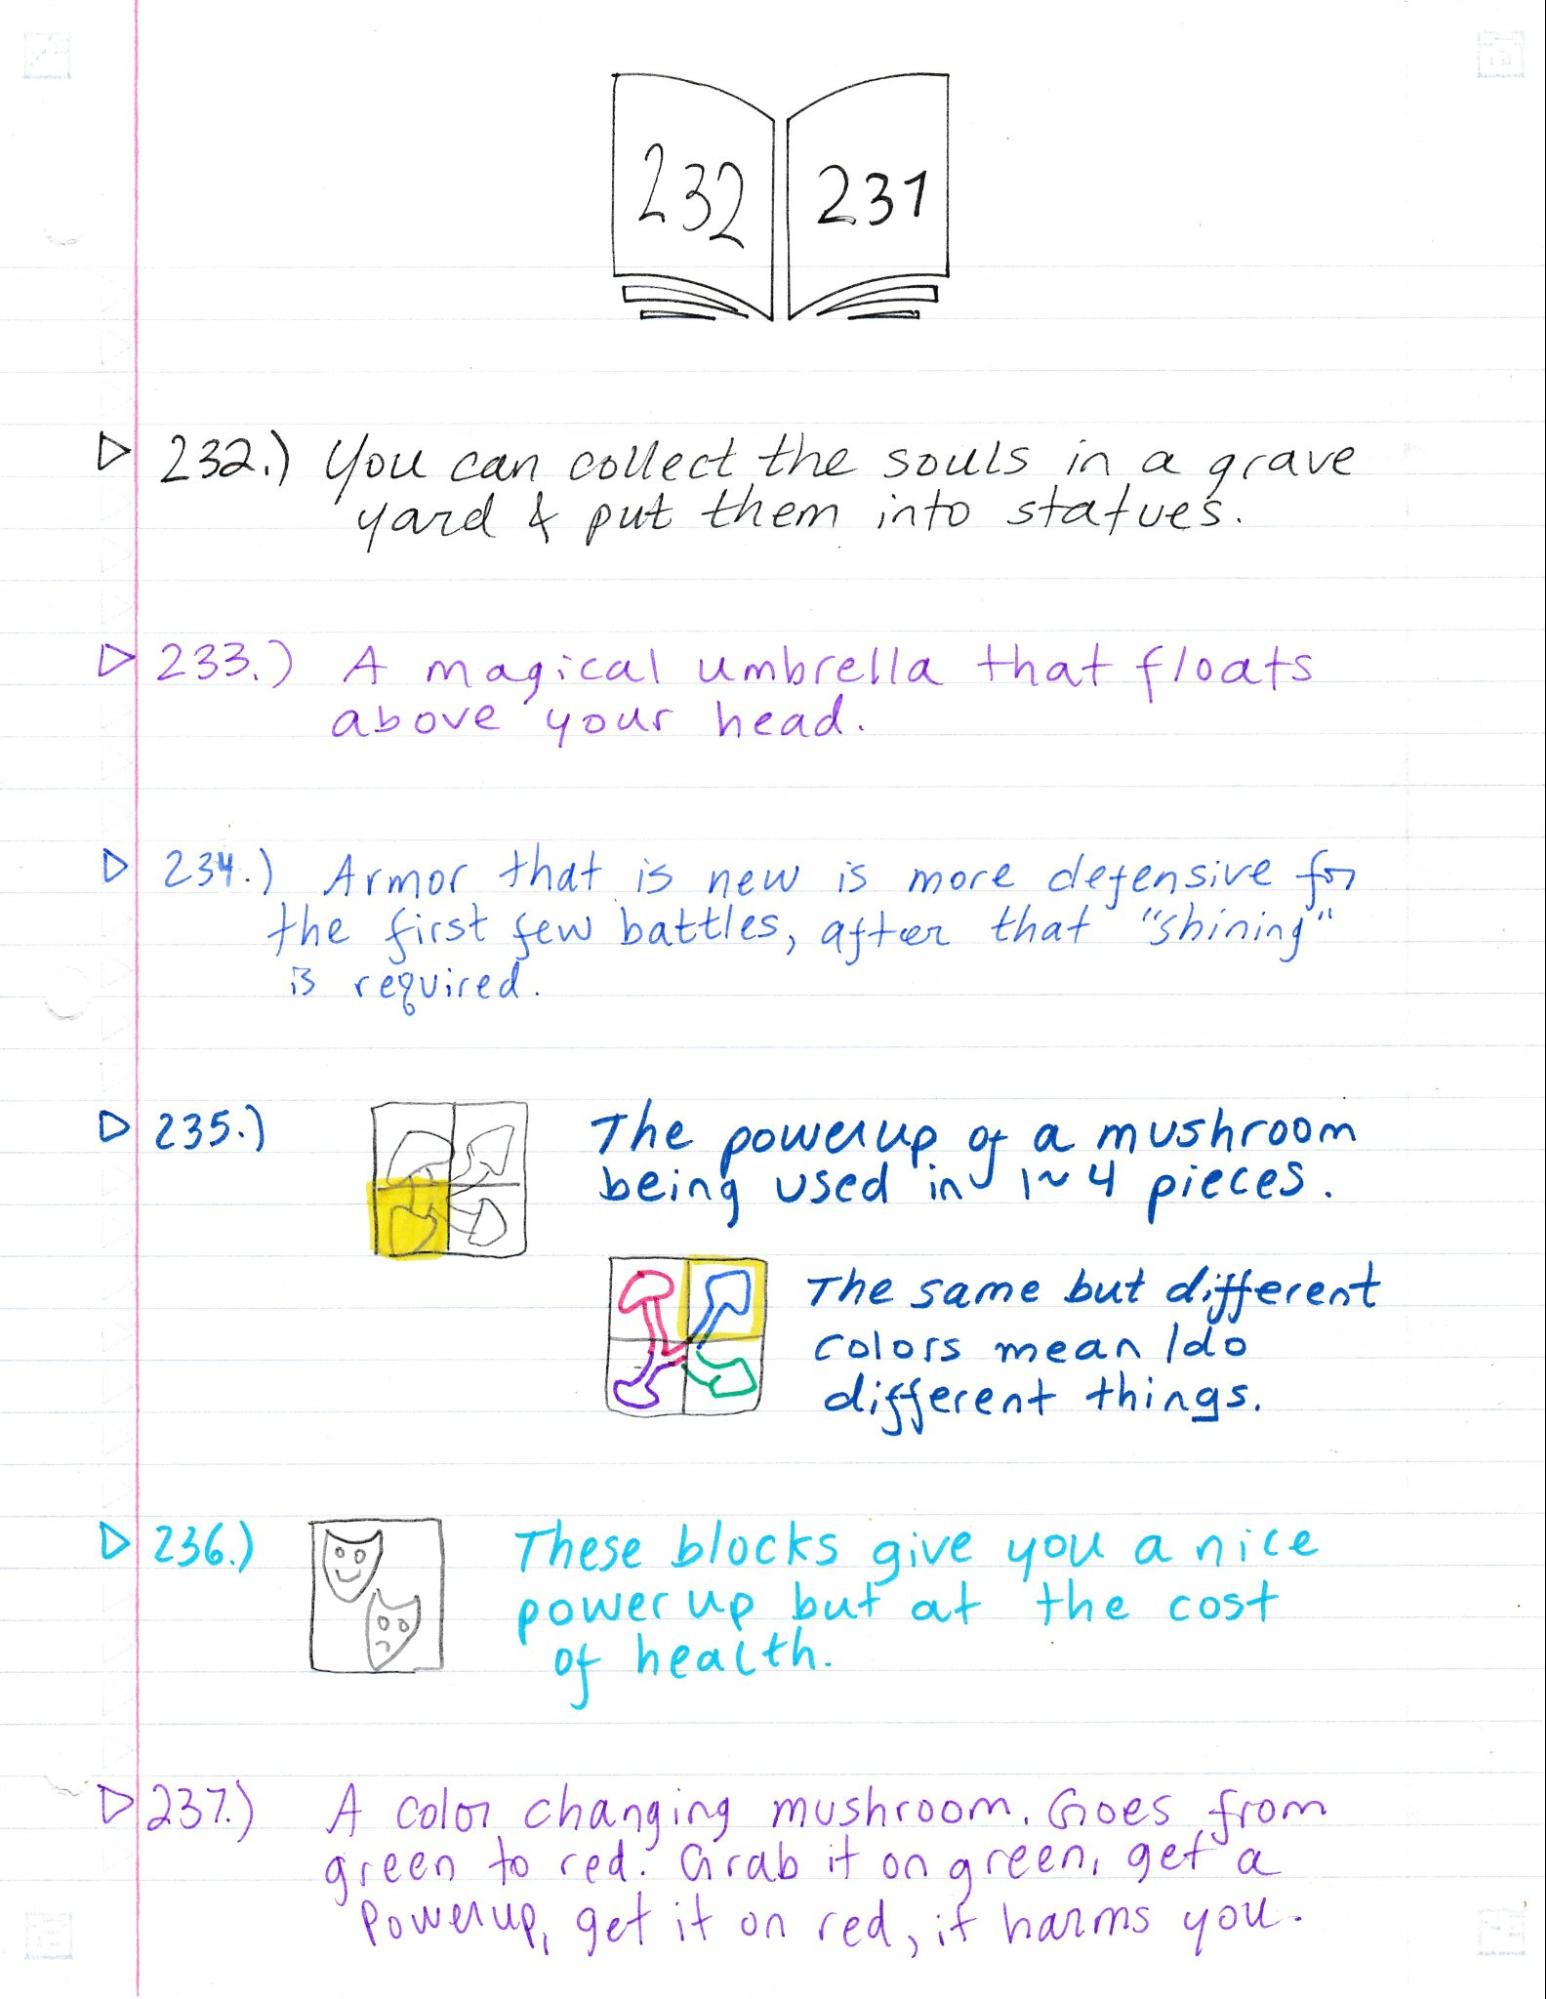 232 231
232.) You can collect the souls in a grave
yard & put them into statues.
233.) A magical umbrella that floats
above your head.
234.) Armor that is new is more defensive for
the first few battles, after that "shining"
is required.
235.) The powerup of a mushroom
being used in 1~4 pieces.
The same but different
colors mean/do
different things.
236.) These blocks give you a nice
power up but at the cost
of health.
237.) A color changing mushroom. Goes from
green to red. Grab it on green, get a
Powerup, get it on red, it harms you.